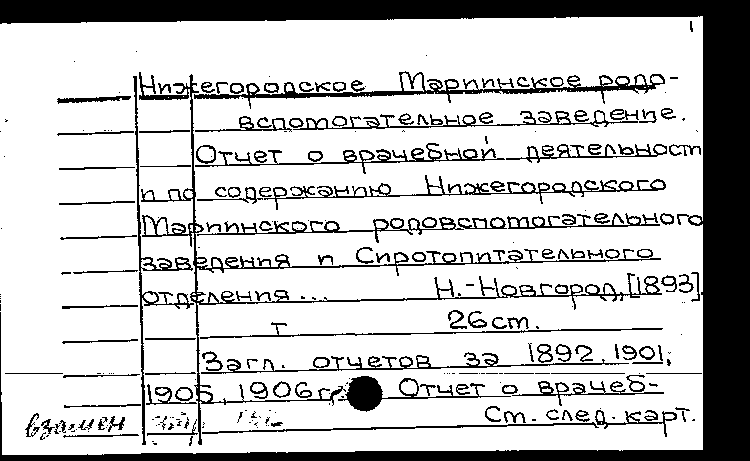 1
Нижегородское Мариинское родо-
вспомогательное заведение.
Отчет о врачебной деятельност
и по содержанию Нижегородского
Мариинского родовспомогательного
заведения и Сиротопитательного
отделения... Н.-Новгород, [1893].
т 26 ст.
Загл. отчетов за 1892, 1901,
1905, 1906 гг. Отчет о врачеб-
Ст. след. карт.
взамен